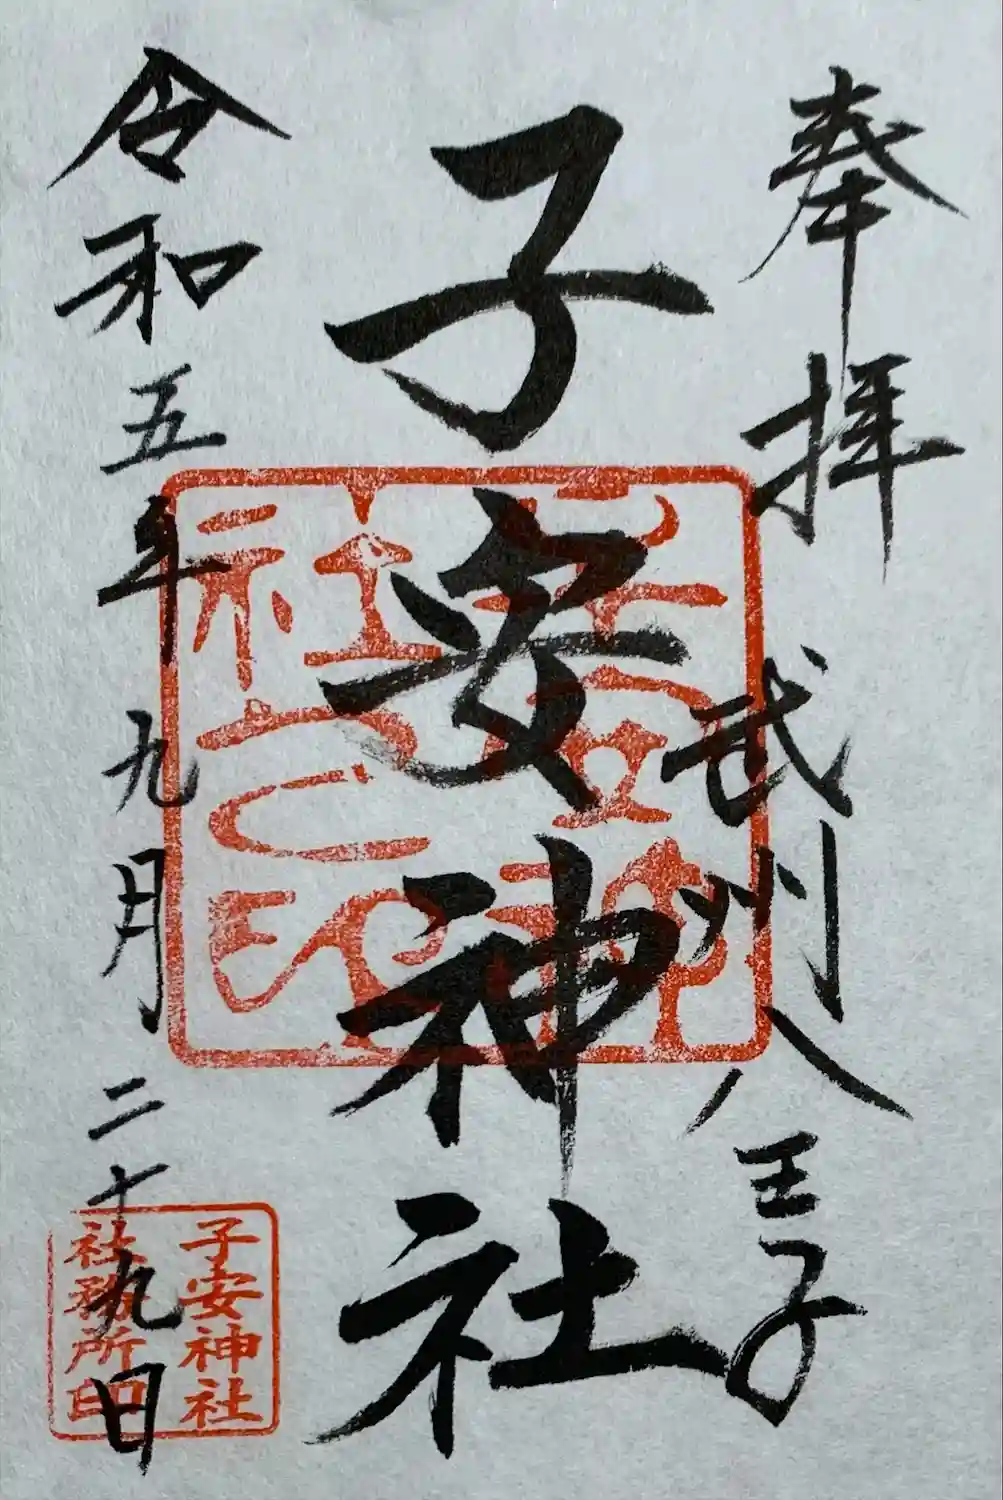 奉拝
武州八王子
子安神社
令和五年九月二十九日
子安神社
之印
子安神社
社務所印